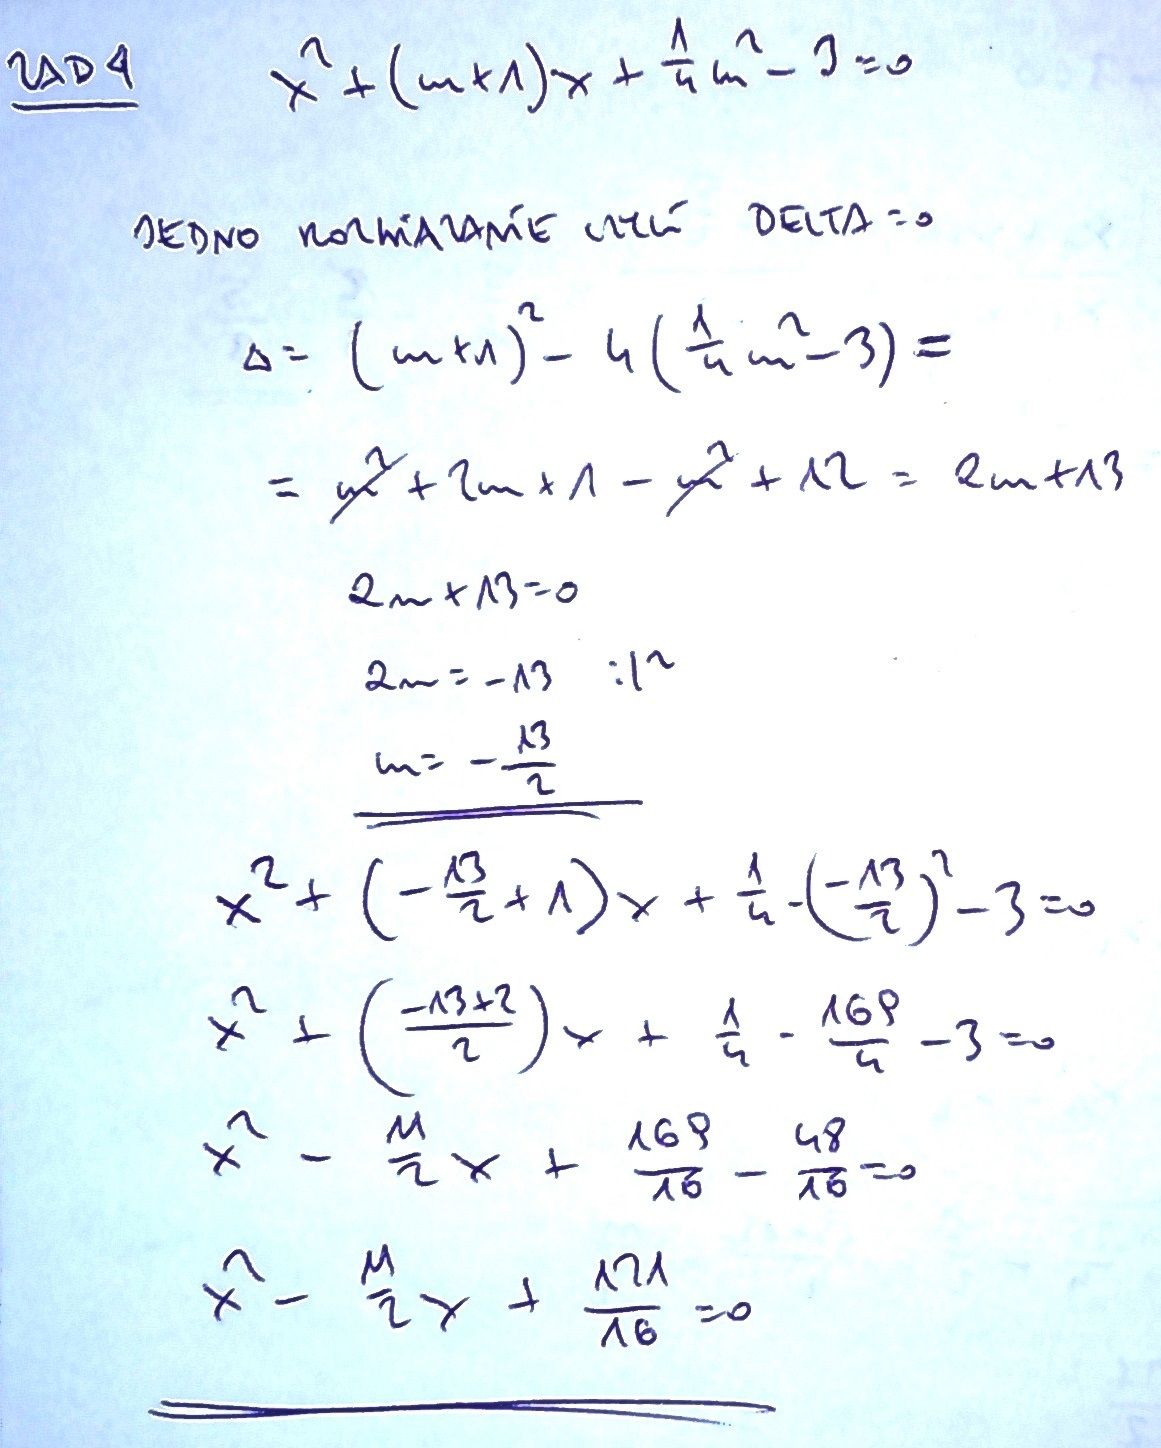 ZAD 4 x² + (m+1)x + 1/4 m² - 3 = 0
JEDNO ROZWIĄZANIE CZYLI DELTA = 0
Δ = (m+1)² - 4(1/4 m² - 3) =
= m² + 2m + 1 - m² + 12 = 2m + 13
2m + 13 = 0
2m = -13 :|2
m = - 13/2
x² + (- 13/2 + 1)x + 1/4 · (-13/2)² - 3 = 0
x² + ((-13+2)/2)x + 1/4 · 169/4 - 3 = 0
x² - 11/2 x + 169/16 - 48/16 = 0
x² - 11/2 x + 121/16 = 0